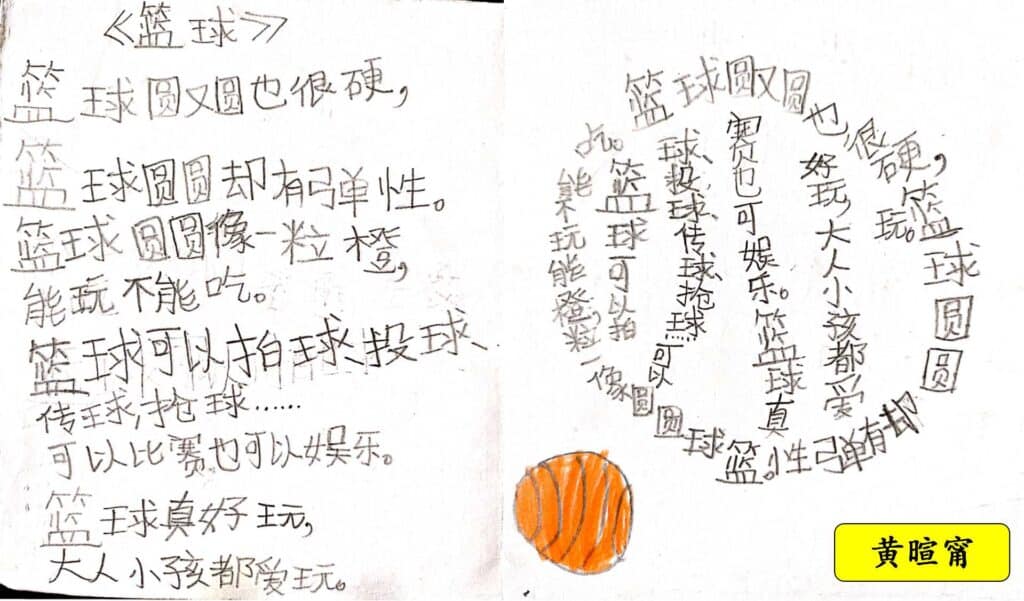 《篮球》
篮球圆又圆也很硬，
篮球圆圆却有弹性。
篮球圆圆像一粒橙，
能玩不能吃。
篮球可以拍球、投球、
传球、抢球……
可以比赛也可以娱乐。
篮球真好玩，
大人小孩都爱玩。
篮球圆又圆也很硬，
篮球圆圆
却有弹性。篮球圆圆像一粒橙，
能玩不能
吃。
篮球可以拍
球、投球、传球、抢球
可以
赛也可娱乐。篮球真
好玩，大人小孩都爱
玩。
黄暄甯